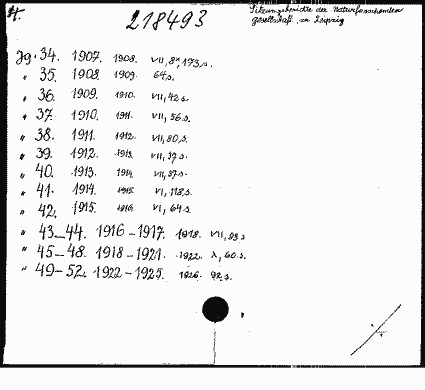 H. 218493 Sitzungsberichte der Naturforschenden
Gesellschaft zu Leipzig
Jg. 34. 1907. 1908. VII, 8*, 173, s.
" 35. 1908 1909. 64 s.
" 36. 1909. 1910. VII, 42 s.
" 37. 1910. 1911. VII, 56 s.
" 38. 1911. 1912. VII, 80, s.
" 39. 1912. 1913. VII, 37 s.
" 40. 1913. 1914. VII, 37 s.
" 41. 1914. 1915. VI, 118, s.
" 42. 1915. 1916. VI, 64 s.
" 43-44. 1916-1917. 1918. VII, 93 s
" 45-48. 1918-1921. 1922. X, 60. s.
" 49-52. 1922-1925. 1926. 92. s.